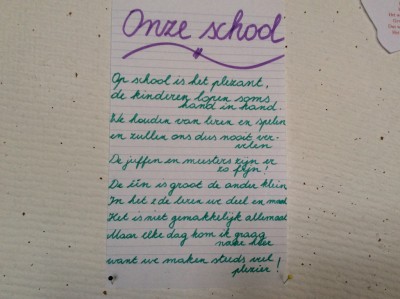 Onze school
Op school is het plezant,
de kinderen lopen soms
hand in hand.
We houden van leren en spelen
en zullen ons dus nooit ver-
velen
De juffen en meesters zijn er
zo fijn!
De één is groot de ander klein
In het 2de leren we deel en maal
Het is niet gemakkelijk allemaal
Maar elke dag kom ik graag
naar hier
want we maken steeds veel
plezier!